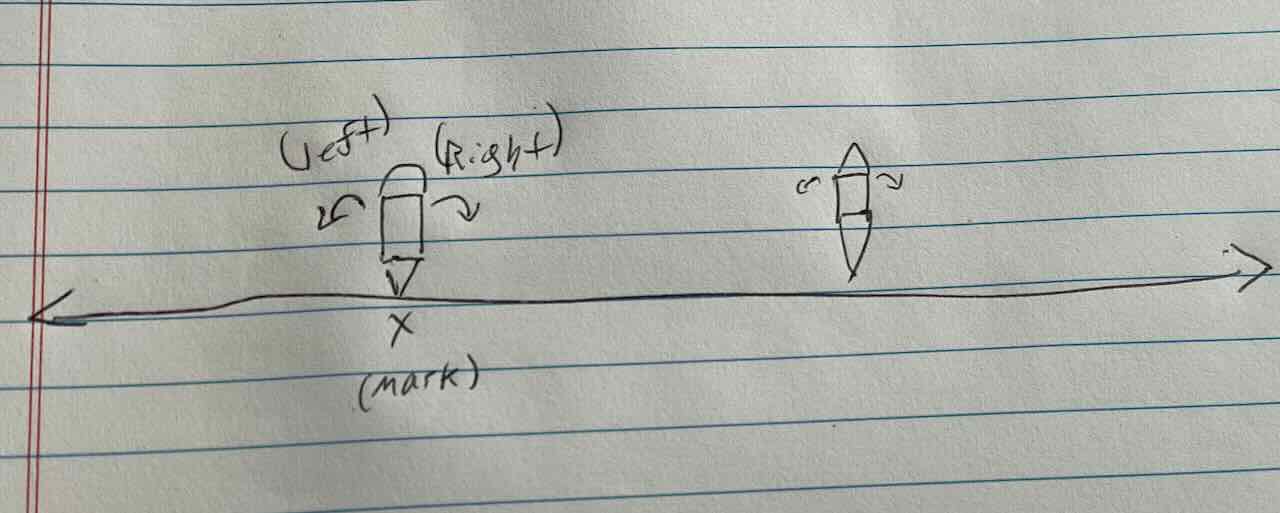 (left) (Right)
X
(mark)